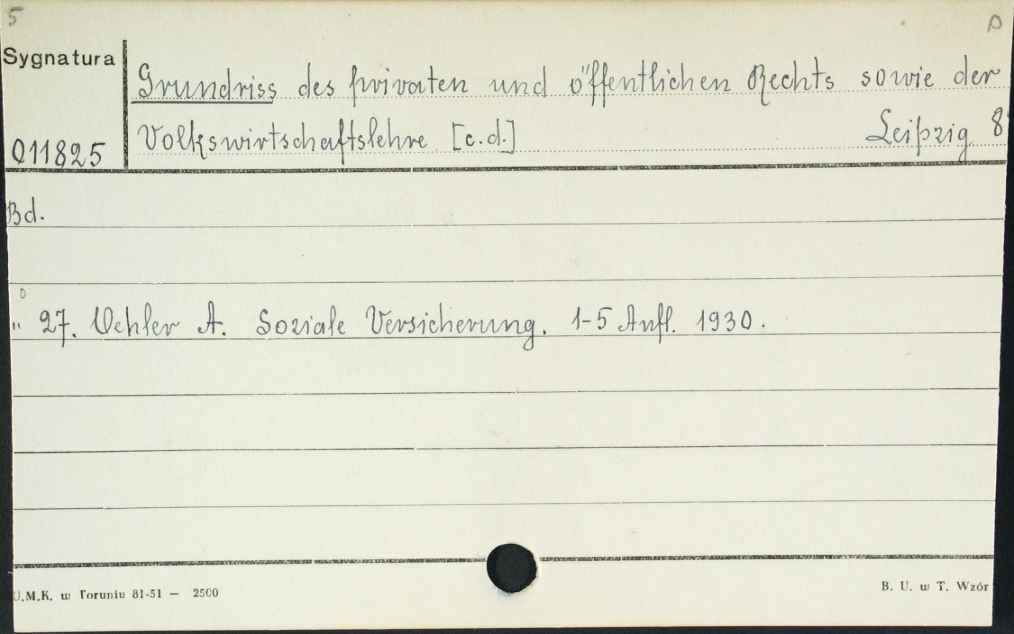 5
D
Sygnatura
Grundriss des privaten und öffentlichen Rechts sowie der
011825
Volkswirtschaftslehre [c.d.] Leipzig 8
Bd.
D
" 27. Oehler A. Soziale Versicherung. 1-5 Aufl. 1930.
U.M.K. w Toruniu 81-51 — 2500
B. U. w T. Wzór